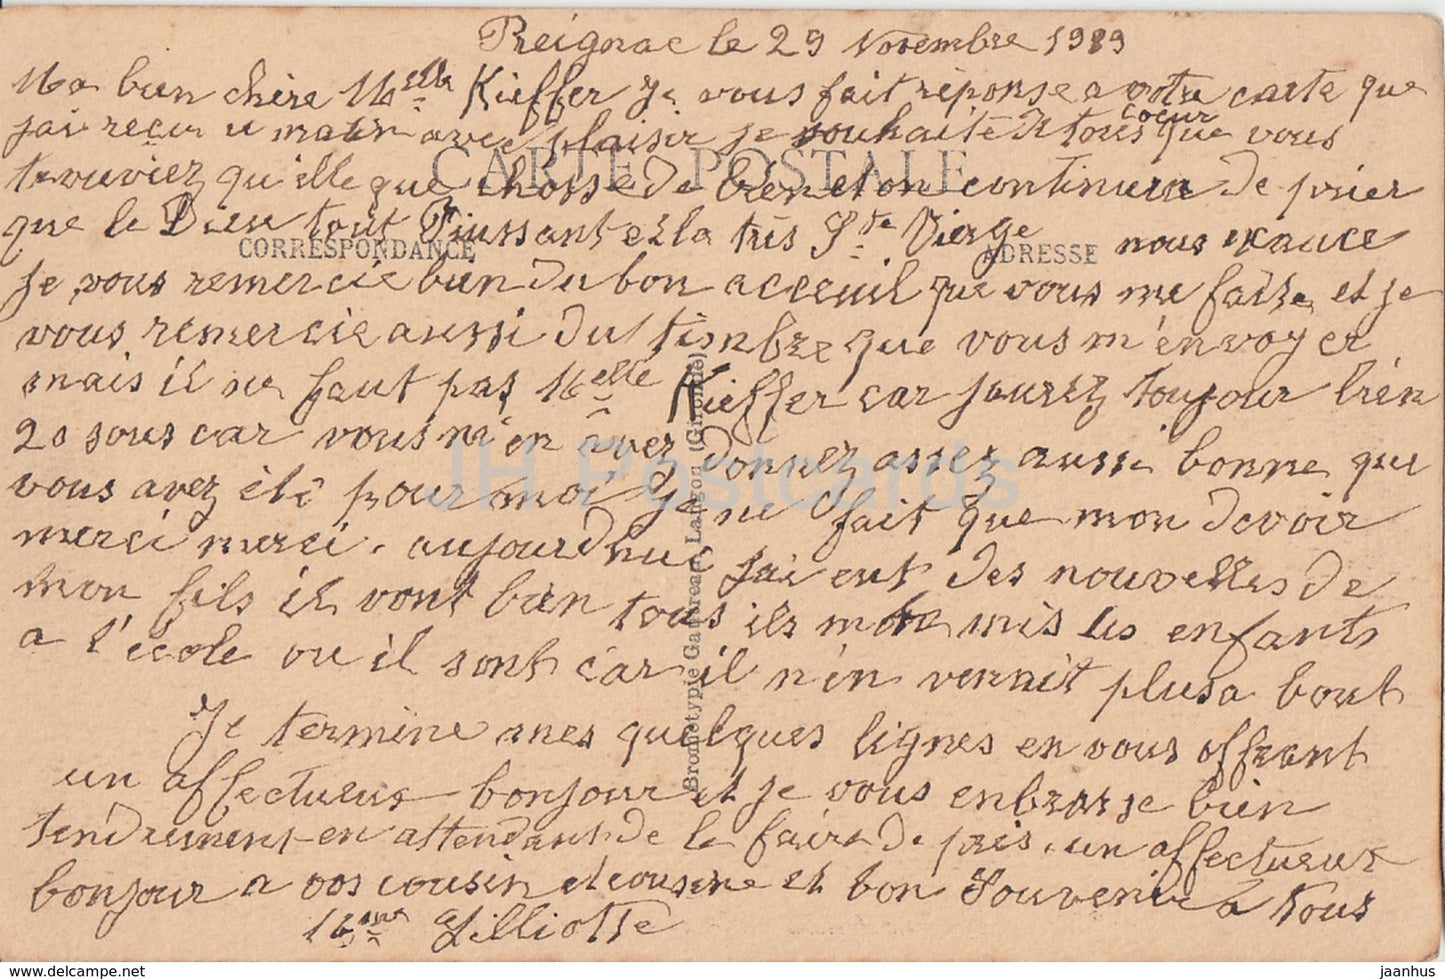 Preignac le 29 Novembre 1929
Ma bien chère Melle Kieffer Je vous fait réponse a votre carte que
jai reçu ce matin avec plaisir je souhaite et tous coeur que vous
trouviez qu'elle que chosse de bien et on continura de prier
que le Dieu tout Puissant et la très Ste Vierge nous exauce
CARTE POSTALE
CORRESPONDANCE
ADRESSE
Je vous remercie bien du bon acceuil que vous me faite et je
vous remercie aussi du timbre que vous m'envoyer
mais il ne faut pas Melle Kieffer car j'aurez toujour bien
20 sous car vous m'en avez donnez assez aussi bonne que
vous avez été pour moi Je ne fait que mon devoir
merci merci. aujourdhui jai eut des nouvelles de
mon fils il vont bien tous ils mon mis les enfants
a l'école ou il sont car il n'en venait plus a bout
Je termine mes quelques lignes en vous offrant
un affectueux bonjour et je vous enbrasse bien
tendrement en attendant de le faire de près. un affectueux
bonjour a vos cousin et cousine et bon Souvenir à tous
Mme Lilliotte
Bromotypie Gautreau, Langon (Gironde)
JH Postcards
www.delcampe.net
jaanhus